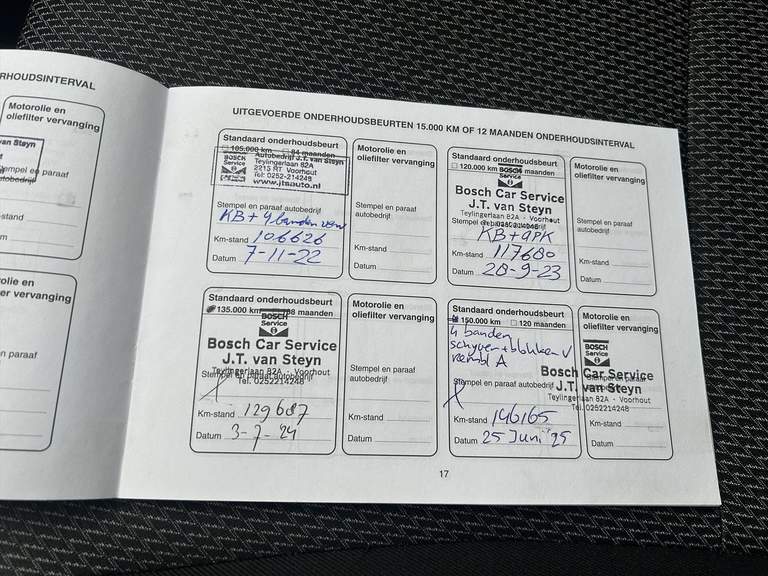 RHOUDSINTERVAL
Motorolie en
oliefilter vervanging
van Steyn
en paraaf
-stand
m
olie en
er vervanging
n paraaf
UITGEVOERDE ONDERHOUDSBEURTEN 15.000 KM OF 12 MAANDEN ONDERHOUDSINTERVAL
Standaard onderhoudsbeurt
105.000 km 84 maanden
BOSCH
Service
Autobedrijf J.T. van Steyn
Teylingerlaan 82A
2215 RT Voorhout
Tel: 0252-214248
www.jtsauto.nl
Stempel en paraaf autobedrijf
KB + 4 banden
Km-stand 106626
Datum 7-11-22
Motorolie en
oliefilter vervanging
Stempel en paraaf
autobedrijf
Km-stand
Datum
Standaard onderhoudsbeurt
120.000 km maanden
BOSCH
Bosch Car Service
J.T. van Steyn
Teylingerlaan 82A - Voorhout
Tel. 0252214248
KB + APK
Km-stand 117680
Datum 28-9-23
Motorolie en
oliefilter vervanging
Stempel en paraaf
autobedrijf
Km-stand
Datum
Standaard onderhoudsbeurt
135.000 km 98 maanden
BOSCH
Service
Bosch Car Service
J.T. van Steyn
Teylingerlaan 82A - Voorhout
Stempel en paraaf autobedrijf
Tel. 0252214248
Km-stand 129687
Datum 3-7-24
Motorolie en
oliefilter vervanging
Stempel en paraaf
autobedrijf
Km-stand
Datum
Standaard onderhoudsbeurt
150.000 km 120 maanden
4 banden
schyven + blokken V
A
Stempel en paraaf autobedrijf
Km-stand 146165
Datum 25 Juni '25
Motorolie en
oliefilter vervanging
BOSCH
Service
Bosch Car Service
J.T. van Steyn
Teylingerlaan 82A - Voorhout
Tel. 0252214248
Km-stand
Datum
17